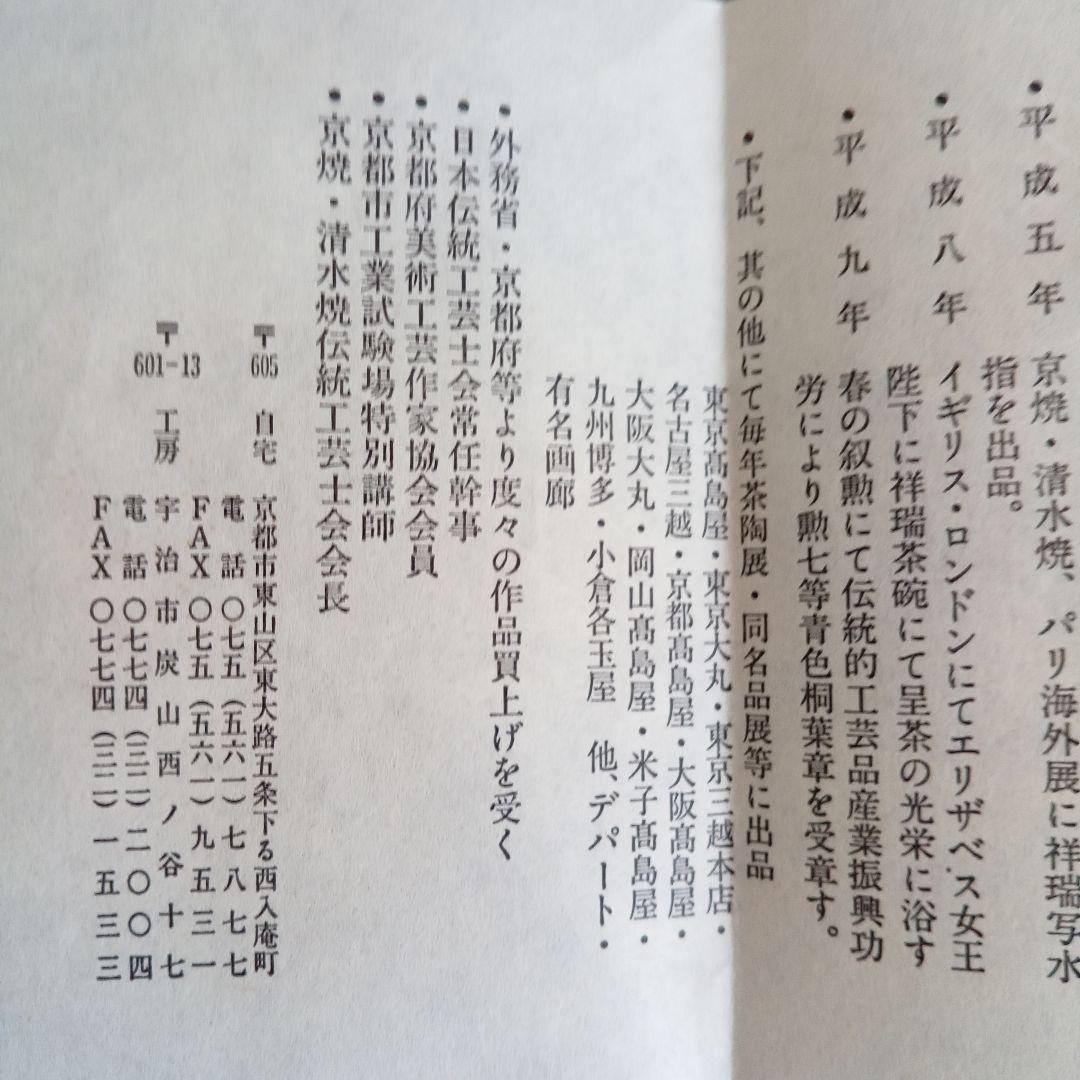 ・平成五年 京焼・清水焼、パリ海外展に祥瑞写水
指を出品。
・平成八年 イギリス・ロンドンにてエリザベス女王
陛下に祥瑞茶碗にて呈茶の光栄に浴す
・平成九年 春の叙勲にて伝統的工芸品産業振興功
労により勲七等青色桐葉章を受章す。
・下記、其の他にて毎年茶陶展・同名品展等に出品
東京髙島屋・東京大丸・東京三越本店・
名古屋三越・京都髙島屋・大阪髙島屋・
大阪大丸・岡山髙島屋・米子髙島屋・
九州博多・小倉各玉屋 他、デパート・
有名画廊
・外務省・京都府等より度々の作品買上げを受く
・日本伝統工芸士会常任幹事
・京都府美術工芸作家協会会員
・京都市工業試験場特別講師
・京焼・清水焼伝統工芸士会会長
〒605 自宅 京都市東山区東大路五条下る西入庵町
電話 〇七五(五六一)七八七七
FAX 〇七五(五六一)九五三一
〒601-13 工房 宇治市炭山西ノ谷十七
電話 〇七七四(三二)二〇〇四
FAX 〇七七四(三二)一五三三